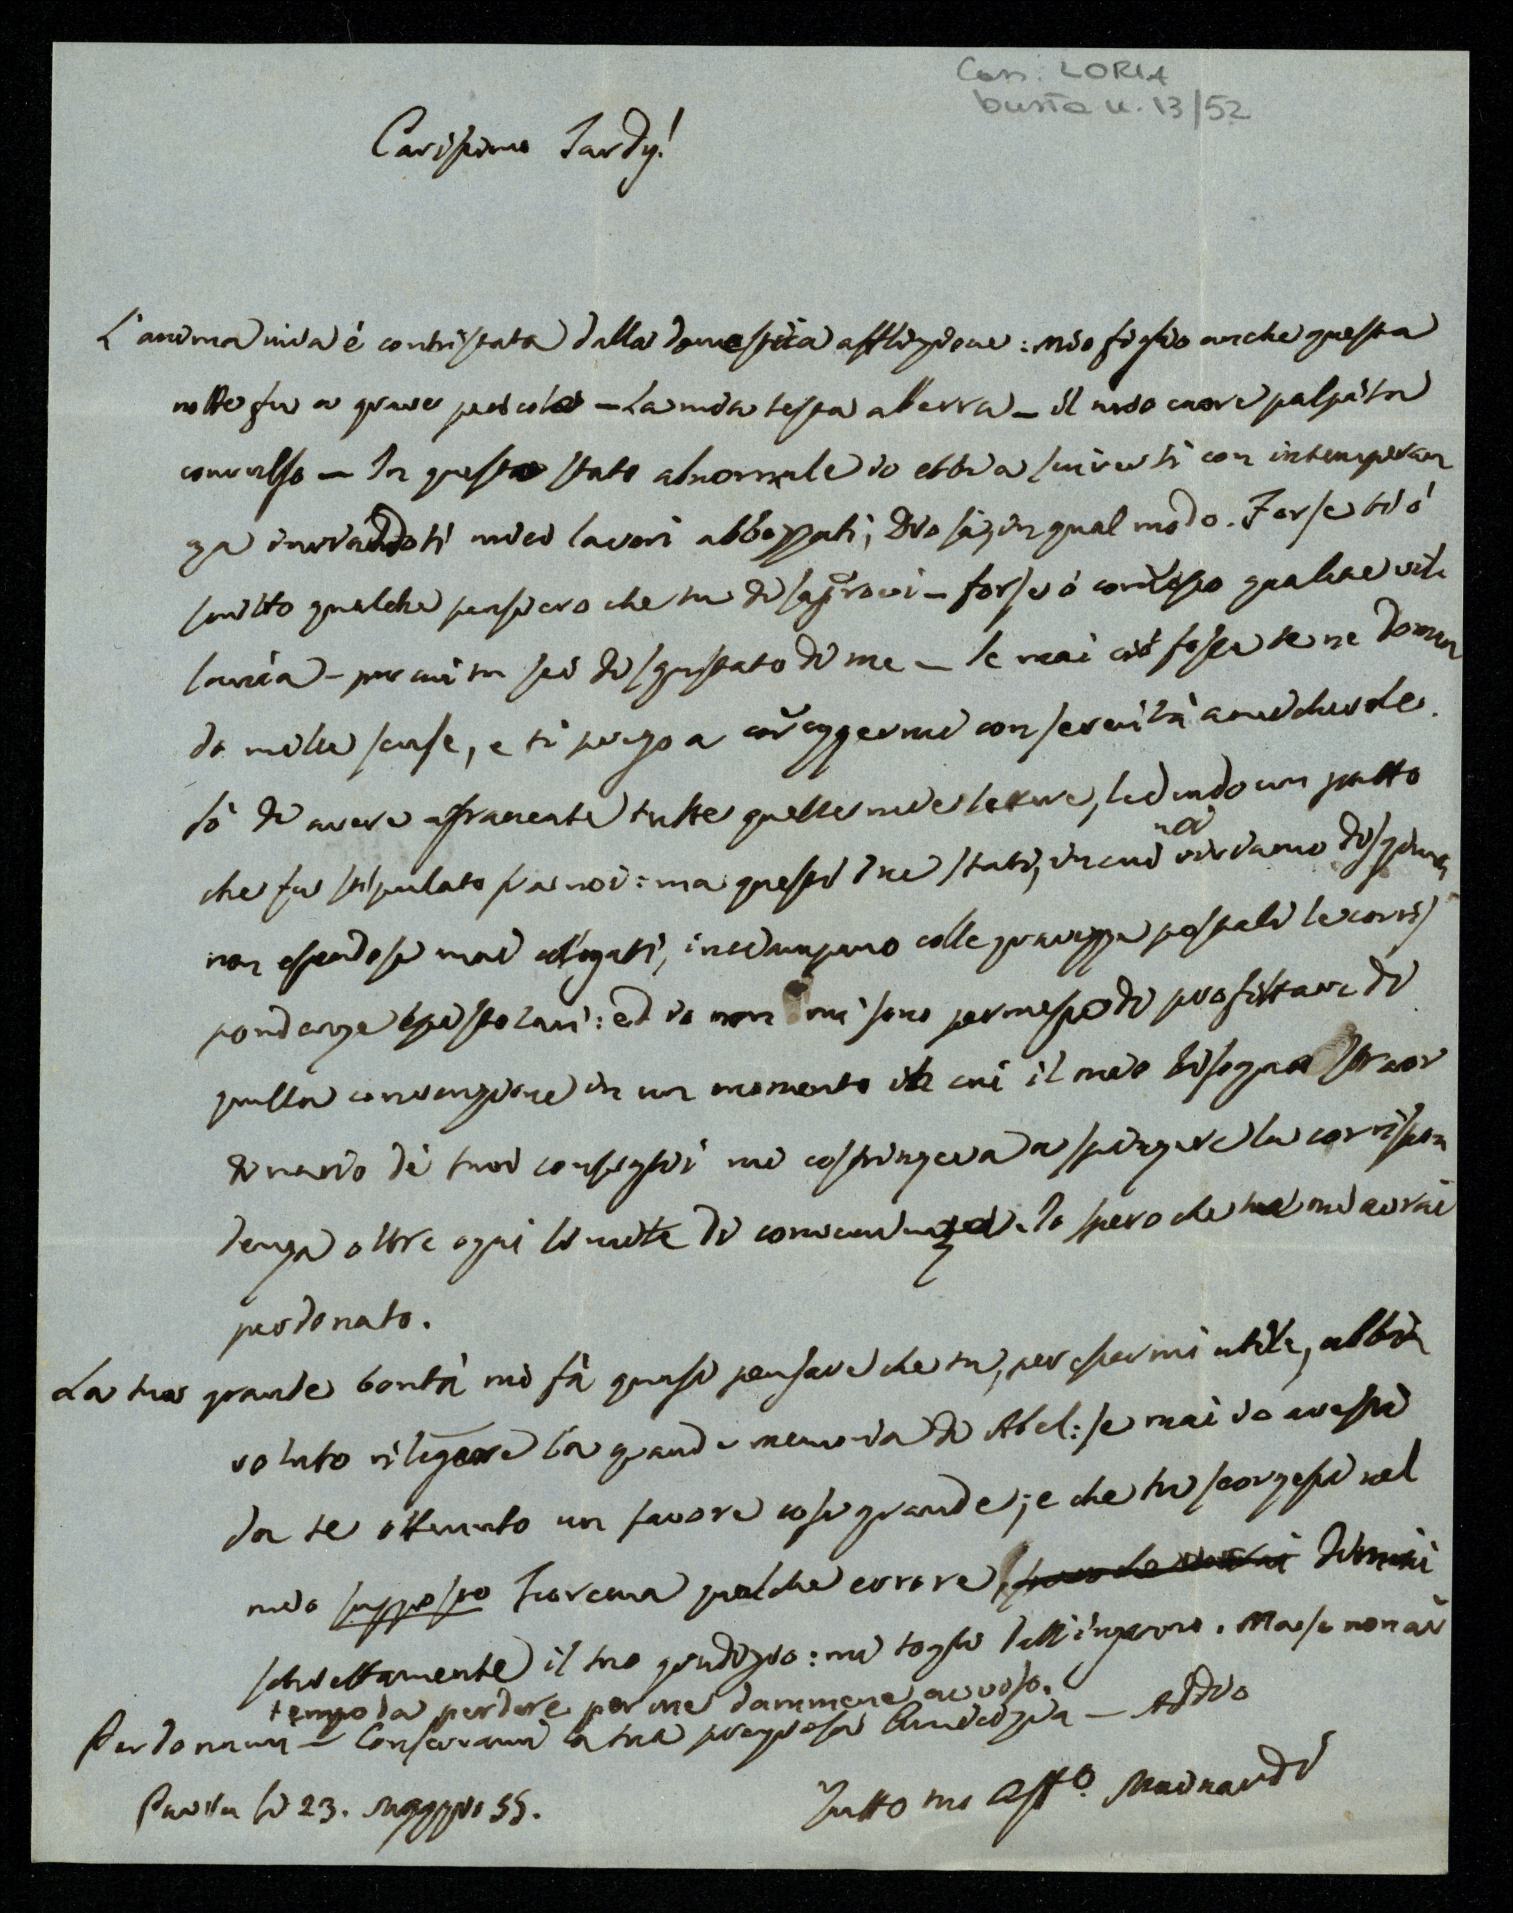 Cass. LORIA
busta n. 13/52
Carissimo Tardy!
L'anima mia è contristata dalla domestica afflizione: mio figlio anche questa
notte fu a grave pericolo – La mia testa aberra – il mio cuore palpita
convulso – In questo stato abnormale io ebbi a scriverti con intemperan
za inviandoti miei lavori abbozzati, Dio sa, in qual modo. Forse ti ó
scritto qualche pensiero che tu disaprovi – forse ó commesso qualche vil
lania – per cui tu sei disgustato di me – Se mai ciò fosse te ne doman
do mille scuse, e ti prego a correggermi con serenità amichevole.
Só di avere affrancate tutte quelle mie lettere, ledendo un patto
che fu stipulato fra noi: ma questi due stati, in cui noi viviamo
non essendosi mai collegati, inciampano colle gravezze postali le corris
pondenze epistolari: ed io non mi sono permesso di profittare di
quella convenzione in un momento in cui il mio bisogno straor
dinario di tuoi consiglii mi costringeva a spingere la corrispon
denza oltre ogni limite di convenienza. Io spero che tu mi avrai
perdonato.
La tua grande bontà mi fà quasi pensare che tu, per essermi utile, abbia
voluto rileggere la grande memoria di Abel: se mai io avessi
da te ottenuto un favore così grande; e che tu scorgessi nel
mio supposto Teorema qualche errore dimmi
schiettamente il tuo giudizio: mi togli dall'inganno. Ma se non ai
tempo da perdere per me dammene avviso.
Perdonami – Conservami la tua preziosa Amicizia – Addio
Pavia li 23. Maggio 55.
Tutto tuo Aff.o Mainardi